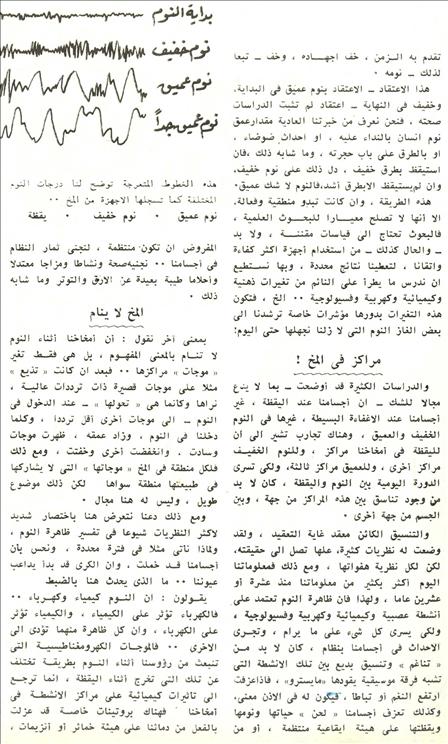 تقدم به الزمن ، خف اجهاده ، وخف ـ تبعا
لذلك ـ نومه .
هذا الاعتقاد ـ الاعتقاد بنوم عميق فى البداية،
وخفيف فى النهاية ـ اعتقاد لم تثبت الدراسات
صحته ، فنحن نعرف من خبرتنا العادية مقدارعمق
نوم انسان بالنداء عليه ، او احداث ضوضاء ،
او بالطرق على باب حجرته ، وما شابه ذلك ،فان
استيقظ بطرق خفيف ، دل ذلك على نوم خفيف،
وان لم يستيقظ الابطرق أشد،فالنوم لا شك عميق.
هذه الطريقة ، وان كانت تبدو منطقية وفعالة،
الا أنها لا تصلح معيارا للبحوث العلمية ،
فالبحوث تحتاج الى قياسات مقننة ، ولا بد
ـ والحال كذلك ـ من استخدام أجهزة اكثر كفاءة
واتقانا ، لتعطينا نتائج محددة ، وبها نستطيع
ان ندرس ما يطرأ على النائم من تغيرات ذهنية
وكيميائية وكهربية وفسيولوجية .. الخ ، فتكون
هذه التغيرات بدورها مؤشرات خاصة ترشدنا الى
بعض الغاز النوم التى لا زلنا نجهلها حتى اليوم!
مراكز فى المخ !
والدراسات الكثيرة قد أوضحت ـ بما لا يدع
مجالا للشك ـ ان أجسامنا عند اليقظة ، غير
أجسامنا عند الاغفاءة البسيطة ، غيرها فى النوم
الخفيف والعميق ، وهناك تجارب تشير الى ان
لليقظة فى أمخاخنا مراكز ، وللنوم الخفيف
مراكز أخرى ، وللعميق مراكز ثالثة، ولكى تسرى
الدورة اليومية بين النوم واليقظة ، كان لا بد
من وجود تناسق بين هذه المراكز من جهة ، وبين
الجسم من جهة أخرى .
والتنسيق الكائن معقد غاية التعقيد ، ولقد
وضعت له نظريات كثيرة، علها تصل الى حقيقته،
لكن لكل نظرية هفواتها ، ومع ذلك فمعلوماتنا
اليوم أكثر بكثير من معلوماتنا منذ عشرة أو
عشرين عاما ، ولهذا فان ظاهرة النوم تعتمد على
أنشطة عصبية وكيميائية وكهربية وفسيولوجية ،
ولكى يسرى كل شىء على ما يرام ، وتجرى
الاحداث فى أجسامنا بنظام ، كان لا بد من
« تناغم » وتنسيق بديع بين تلك الانشطة التى
تشبه فرقة موسيقية يقودها «مايسترو» ، فاذاعزفت
ارتفع النغم أو تباطأ ، فيكون له فى الاذن معنى،
وكذلك تعزف أجسامنا « لحن » حياتها ونومها
ويقظتها على هيئة ايقاعية منتظمة ، أو من
بداية النوم
نوم خفيف
نوم عميق
نوم عميق جداً
هذه الخطوط المتعرجة توضح لنا درجات النوم
المختلفة كما تسجلها الاجهزة من المخ ..
نوم عميق . نوم خفيف . يقظة
المفروض ان تكون منتظمة ، لنجنى ثمار النظام
فى أجسامنا .. نجنيه صحة ونشاطا ومزاجا معتدلا
وأحلاما طيبة بعيدة عن الارق والتوتر وما شابه
ذلك .
المخ لا ينام
بمعنى آخر نقول : أن أمخاخنا أثناء النوم
لا تنام بالمعنى المفهوم ، بل هى فقط تغير
« موجات » مراكزها .. فبعد ان كانت « تذيع »
مثلا على موجات قصيرة ذات ترددات عالية ،
نراها وكأنما هى « تحولها » ـ عند الدخول فى
النوم ـ الى موجات أخرى أقل ترددا ، وكلما
دخلنا فى النوم ، وزاد عمقه ، ظهرت موجات
وسادت . وانخفضت أخرى وخفتت ، ومع ذلك
فلكل منطقة فى المخ « موجاتها » التى لا يشاركها
فى طبيعتها منطقة سواها لكن ذلك موضوع
طويل ، وليس له هنا مجال .
ومع ذلك دعنا نتعرض هنا باختصار شديد
لاكثر النظريات شيوعا فى تفسير ظاهرة النوم ،
ولماذا تأتى مثلا فى فترة محددة ، ونحس بأن
أجسامنا قد خملت ، وان الكرى قد بدأ يداعب
عيوننا .. ما الذى يحدث هنا بالضبط
يقولون : ان النوم كيمياء وكهرباء ..
فالكهرباء تؤثر على الكيمياء ، والكيمياء تؤثر
على الكهرباء ، وان كل ظاهرة منهما تؤدى الى
الاخرى .. فالموجات الكهرومغناطيسية التى
تنبعث من رؤوسنا أثناء النوم بطريقة تختلف
عن تلك التى تخرج أثناء اليقظة ، انما ترجع
الى تأثيرات كيميائية على مراكز الانشطة فى
أمخاخنا فهناك بروتينات خاصة قد عزلت
بالفعل من دمائنا على هيئة خمائر أو أنزيمات ،